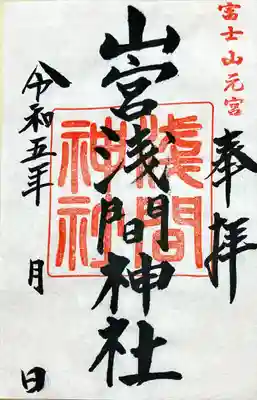 富士山元宮
奉拝
山宮浅間神社
浅間
神社
令和五年 月 日